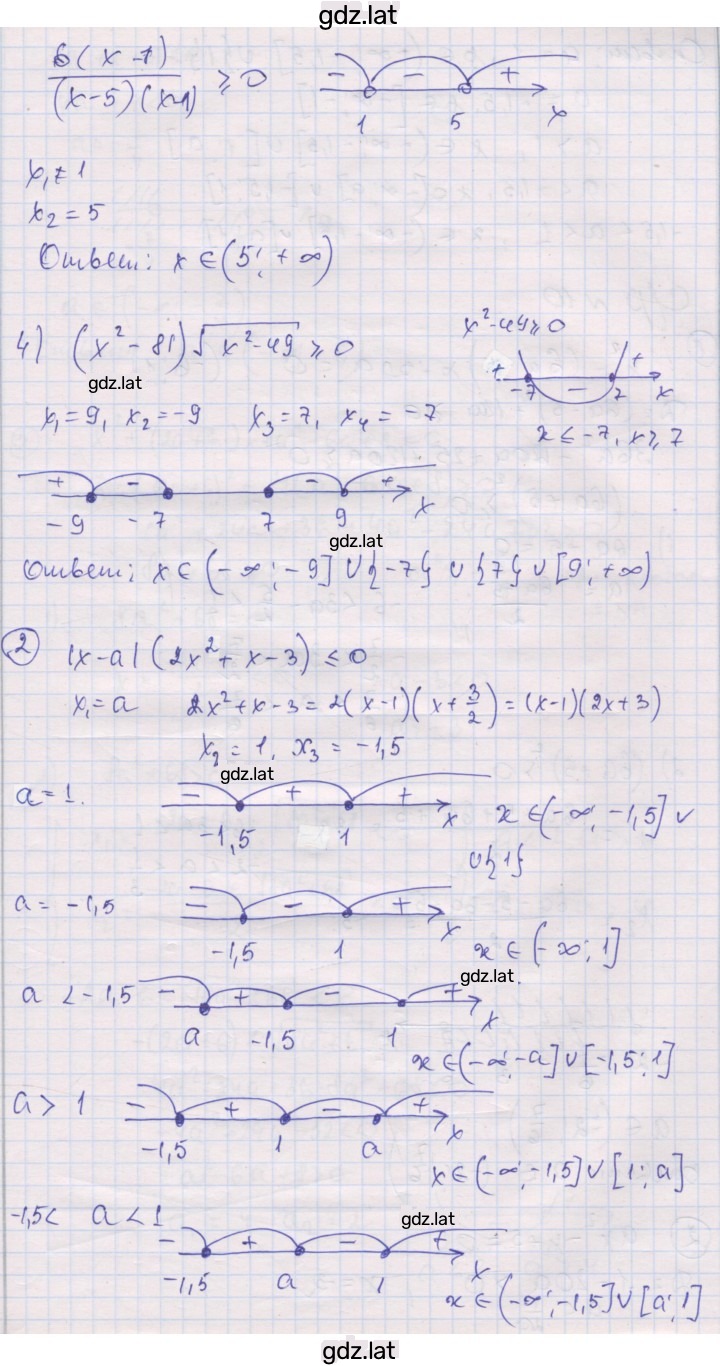 gdz.lat
6(x-1)/((x-5)(x-1)) ≥ 0
- - +
1 5 x
x₁ ≠ 1
x₂ = 5
Ответ: x ∈ (5; +∞)
4) (x² - 81)√(x² - 49) ≥ 0
x² - 49 ≥ 0
+ - +
-7 7 x
x ≤ -7, x ≥ 7
gdz.lat
x₁ = 9, x₂ = -9 x₃ = 7, x₄ = -7
+ - - +
-9 -7 7 9 x
gdz.lat
Ответ: x ∈ (-∞; -9] ∪ {-7} ∪ {7} ∪ [9; +∞)
2 |x-a|(2x² + x - 3) ≤ 0
x₁ = a 2x² + x - 3 = 2(x-1)(x + 3/2) = (x-1)(2x+3)
x₂ = 1, x₃ = -1,5
gdz.lat
a = 1.
- + +
-1,5 1 x
x ∈ (-∞; -1,5] ∪
∪{1}
a = -1,5
- - +
-1,5 1 x
x ∈ (-∞; 1]
gdz.lat
a < -1,5
- + - +
a -1,5 1 x
x ∈ (-∞; -a] ∪ [-1,5; 1]
a > 1
- + - +
-1,5 1 a x
x ∈ (-∞; -1,5] ∪ [1; a]
-1,5 < a < 1
gdz.lat
- + - +
-1,5 a 1 x
x ∈ (-∞; -1,5] ∪ [a; 1]
gdz.lat